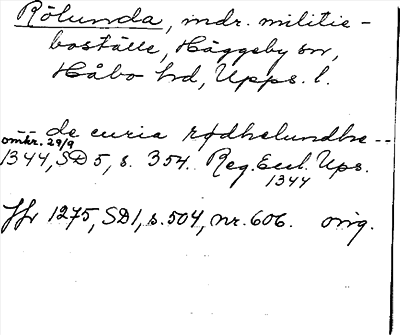 Rölunda, mdr. militie-
boställe, Häggeby sn,
Håbo hd, Upps. l.
-- de curia rødhelundhe --
omkr. 29/9
1344, SD 5, s. 354. Reg. Eccl. Ups.
1344
Jfr 1275, SD 1, s. 504, nr. 606. orig.